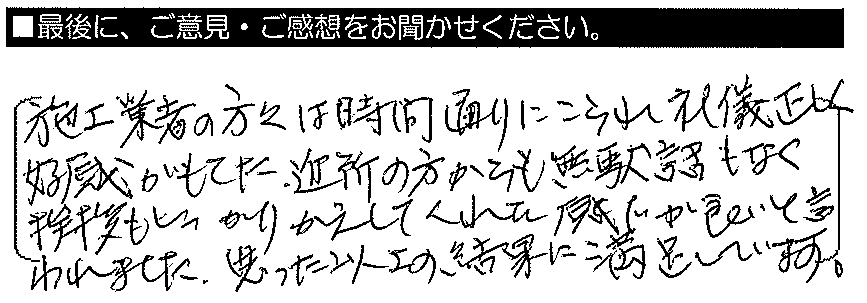 ■最後に、ご意見・ご感想をお聞かせください。
施工業者の方々は時間通りにこられ礼儀正しく
好感がもてた。近所の方からも無駄話もなく
挨拶もしっかりかえしてくれた感じが良いと言
われました。思った以上の結果に満足しています。